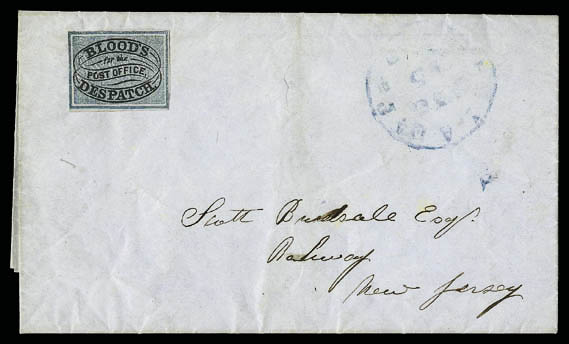 BLOOD'S
for the
POST OFFICE,
DESPATCH.
Scott Birdsale Esqr.
Rahway
New Jersey